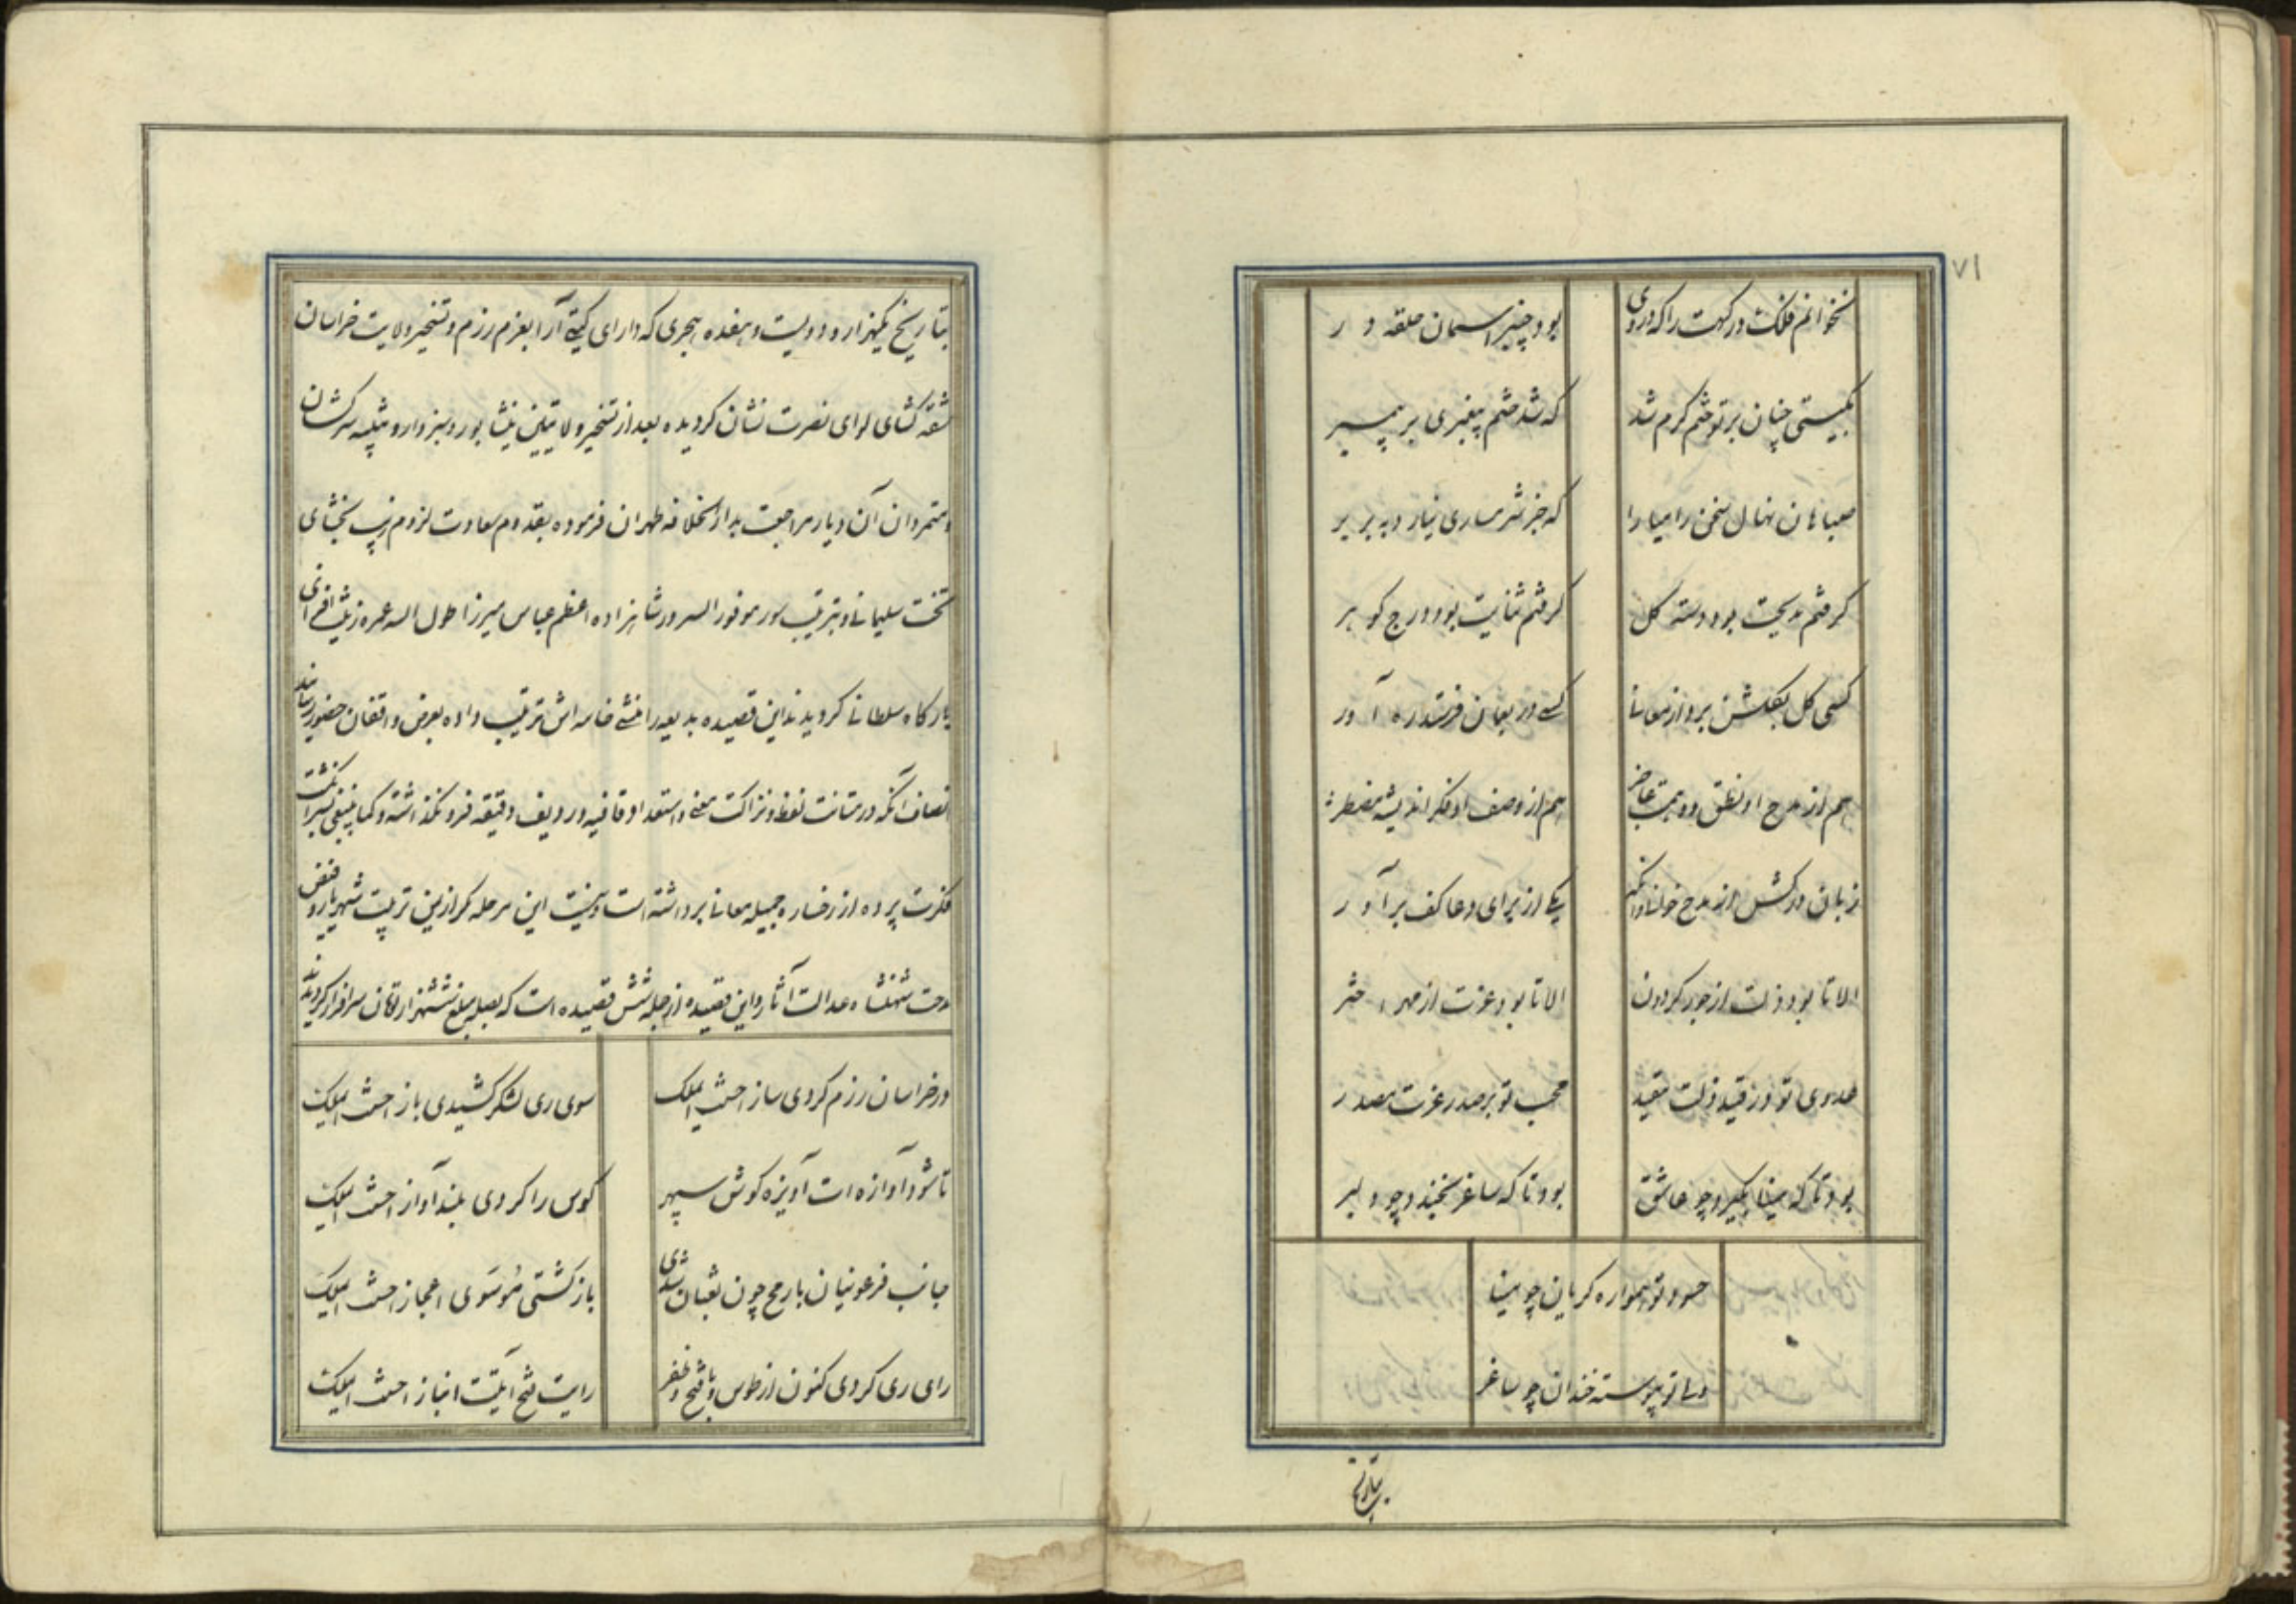 ۷۱
نخوانم فلک درکهت را که دروی
بود چنبر آسمان حلقه در
بگیتی چنان بر تو ختم کرم شد
که شد ختم پیغبری بر پیمبر
صبا هان نهال سخن را میارا
که جز شرمساری نیارد به بر بر
کرفتم مدیحت بود دسته کل
کرفتم ثنایت بود درج کوهر
کسی کل بکلشن برد از
کسی در بعمان فرستد ره آور
هم از مدح او نطق و وهمت عاجز
هم از وصف او فکر اندیشه مضطر
زبان درکش از مدح خوانی
یکی از برای دعا کف برآور
الا تا بود ذلت از جور کردون
الا تا بود عزت از مهر اختر
عدوی تو در قید ذلت مقید
محب تو بر صدر عزت مصدر
بود تا که مینا بگرید چو عاشق
بود تا که ساغر بخندد چو دلبر
حسود تو همواره کریان چو مینا
ولی تو پیوسته خندان چو ساغر
بتاریخ
بتاریخ یکهزار و دویست و هفده هجری که دارای کیتی آرا بعزم رزم و تسخیر ولایت خراسان
شقه کشای لوای نصرت نشان کردیده بعد از تسخیر ولایتین نیشابور و سبزوار و تنبیه سرکشان
و متمردان آن دیار مراجعت بدارالخلافه طهران فرموده بقدوم سعادت لزوم زیب بخشای
تخت سلیمانی و بترتیب سور موفور السرور شاهزاده اعظم عباس میرزا طول الله عمره زینت افزای
بارکاه سلطانی کردیدند این قصیده بدیعه را منشی خامه اش ترتیب داده بعرض واقفان حضور رسانید
انصاف آنکه در متانت لفظ و نزاکت معنی و استعداد قافیه و ردیف دقیقه فرو نکذاشته و کما ینبغی بسرانکشت
فکرت پرده از رخساره جمیله معانی برداشته است و نیست این مرحله مکر از یمن تربیت شهریار و فیض
مدحت شهنشاه عدالت آثار و این قصیده از جمله شش قصیده است که بصله مبلغ ششهزار تومان سرافراز کردیدند
در خراسان رزم کردی ساز احسنت ای ملک
سوی ری لشکر کشیدی باز احسنت ای ملک
تا شود آوازه ات آویزه کوش سپهر
کوس را کردی بلند آواز احسنت ای ملک
جانب فرعونیان با رمح چون ثعبان شدی
باز کشتی موسوی اعجاز احسنت ای ملک
رای ری کردی کنون از طوس و با فتح و ظفر
رایت فتح آیتت انباز احسنت ای ملک